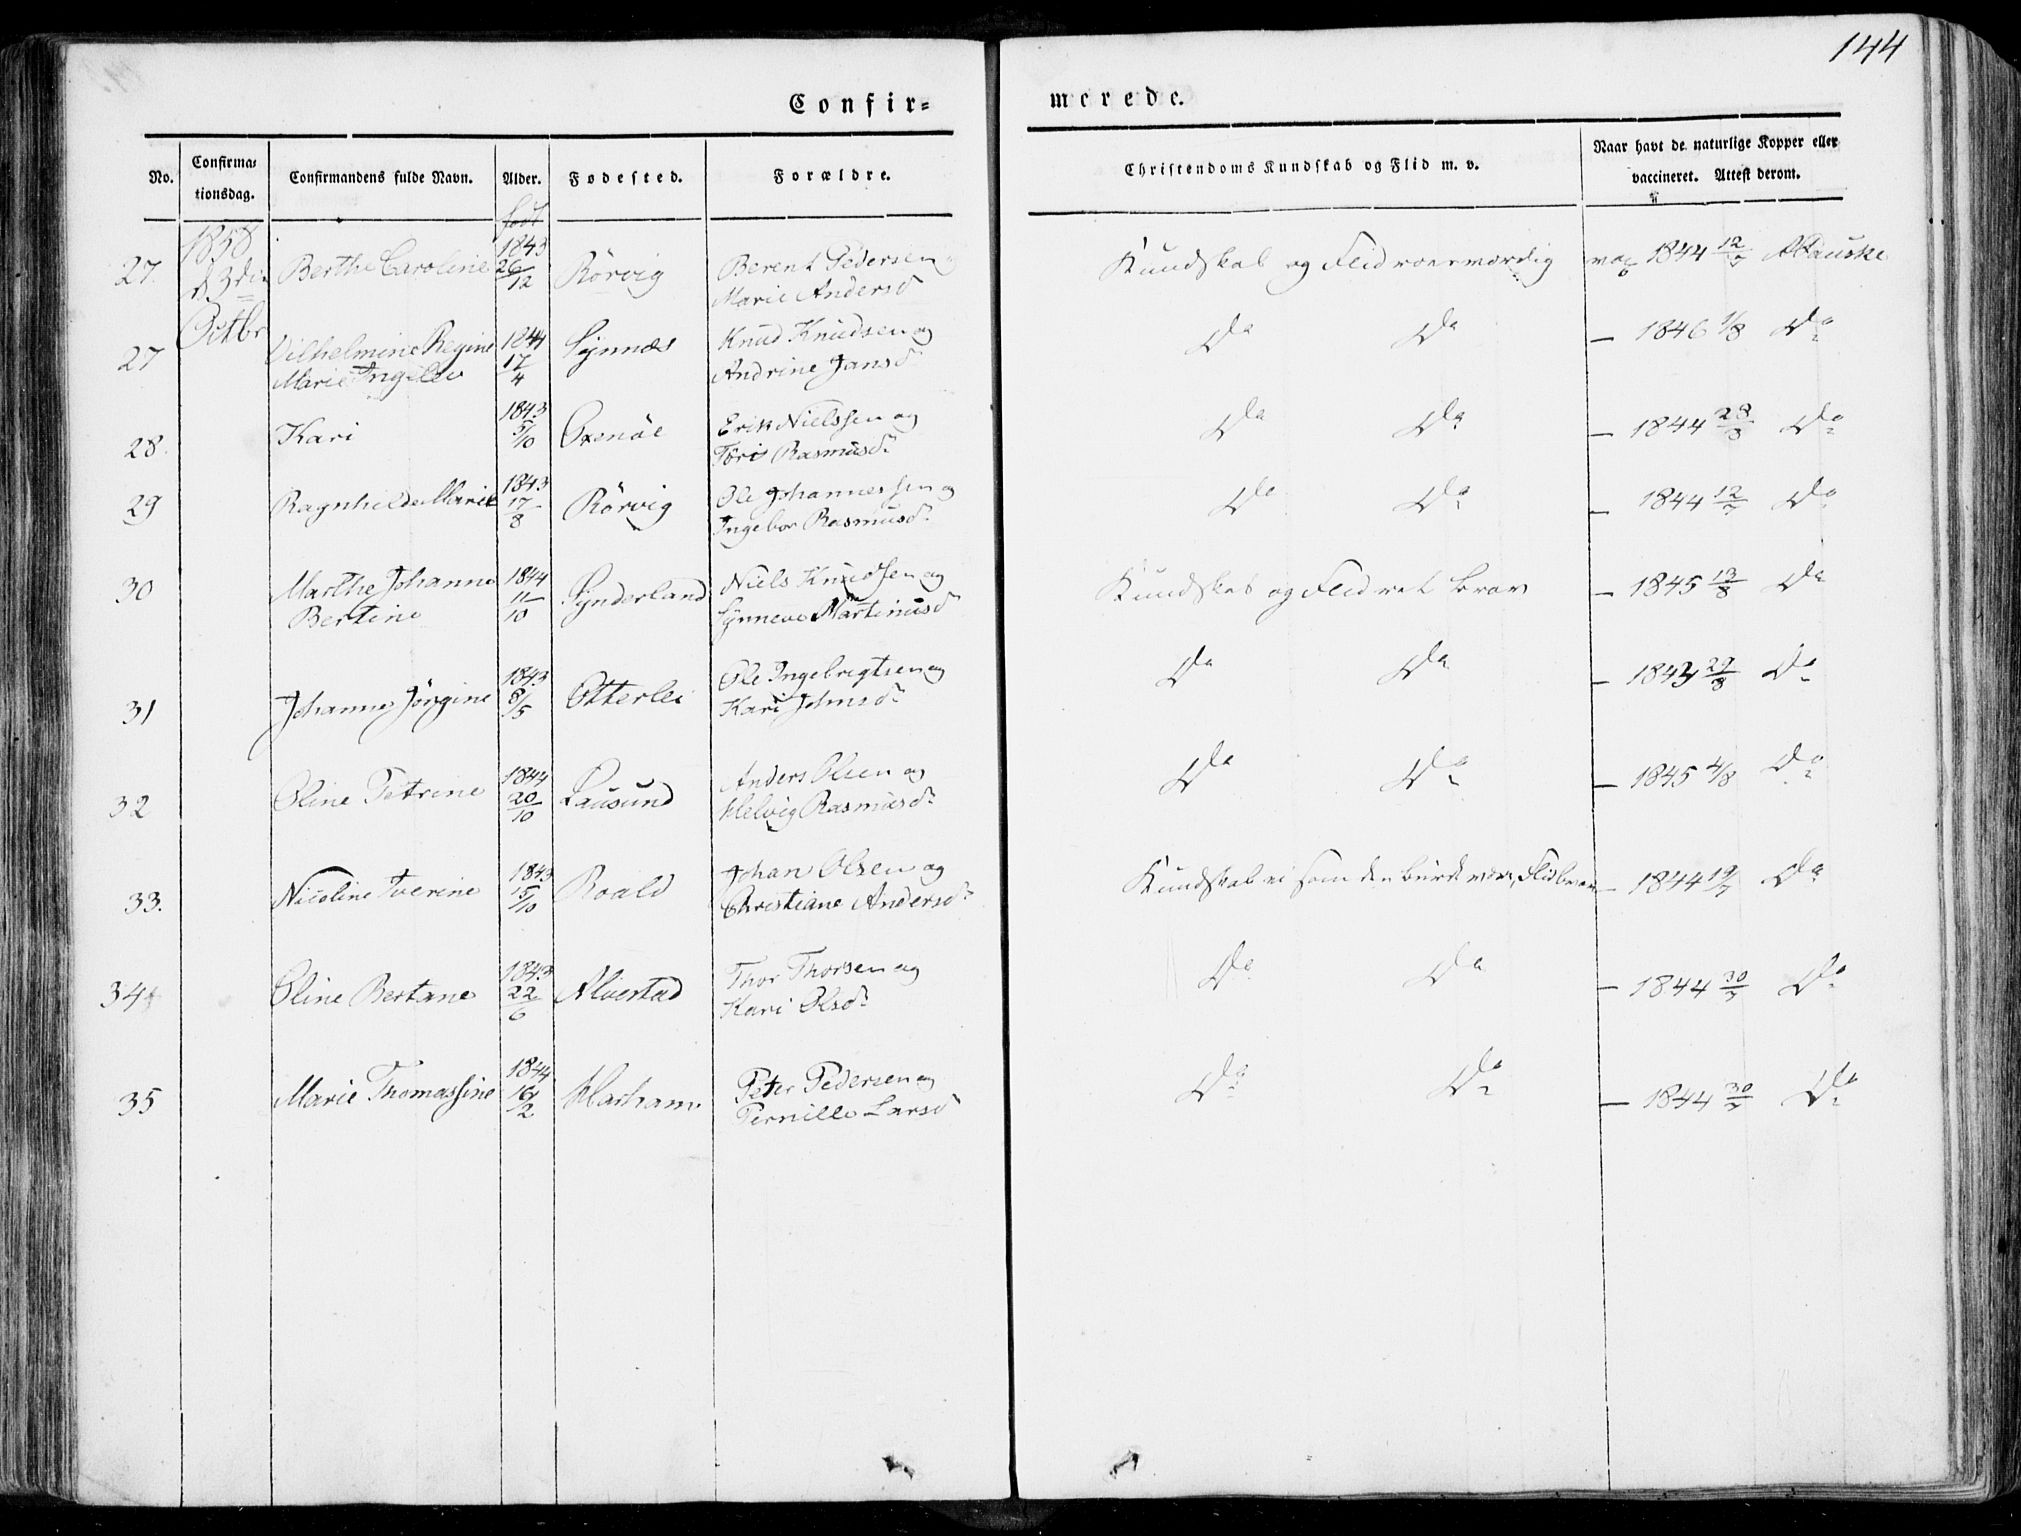 144
Confir=
merede.
No.
Confirma=
tionsdag.
Confirmandens fulde Navn.
Alder.
Fødested.
Forældre.
Christendoms Kundskab og Flid m. v.
Naar havt de naturlige Kopper eller
vaccineret. Attest derom.
født
27. 1858 d 3die Octbr Berthe Caroline 1843 26/12 Rörvig Berent Pedersen og
Marie Andersd Kundskab og Flid roesværdig vac 1844 12/7
27 Vilhelmine Regine 1844 17/4 Synnæs Knud Knudsen og
Marie Ingelev Andrine Jansd Do Do — 1846 1/8 Do
28. Kari 1843 5/10 Oxenöe Erik Nielssen og
Töri Rasmusdr Do Do — 1844 28/3 Do
29 Ragnhilde Marie 1843 17/8 Rörvig Ole Johannessen og
Ingebor Rasmusdr Do Do — 1844 12/7 Do
30 Marthe Johanne 1844 11/10 Synderland Niels Knudsen og
Bertine Synneve Martinusd Kundskab og Flid ret brav — 1845 13/8 Do
31 Johanne Jörgine 1843 8/5 Otterlei Ole Ingebrigtsen og
Kari Johnsdr Do Do — 1843 29/8 Do
32 Oline Petrine 1844 20/10 Lausund Anders Olsen og
Helvig Rasmusdr Do Do — 1845 4/8 Do
33. Nicoline Iverine 1843 15/10 Roald Johan Olsen og
Christiane Andersdr Kundskab ei som den burde være, Flid brav — 1844 19/7 Do
34 Oline Bertane 1843 22/6 Alvestad Thor Thorsen og
Kari Olsdr Do Do — 1844 30/7 Do
35 Marie Thomassine 1844 16/2 Harham Peter Pedersen og
Pernille Larsd Do Do — 1844 30/7 Do